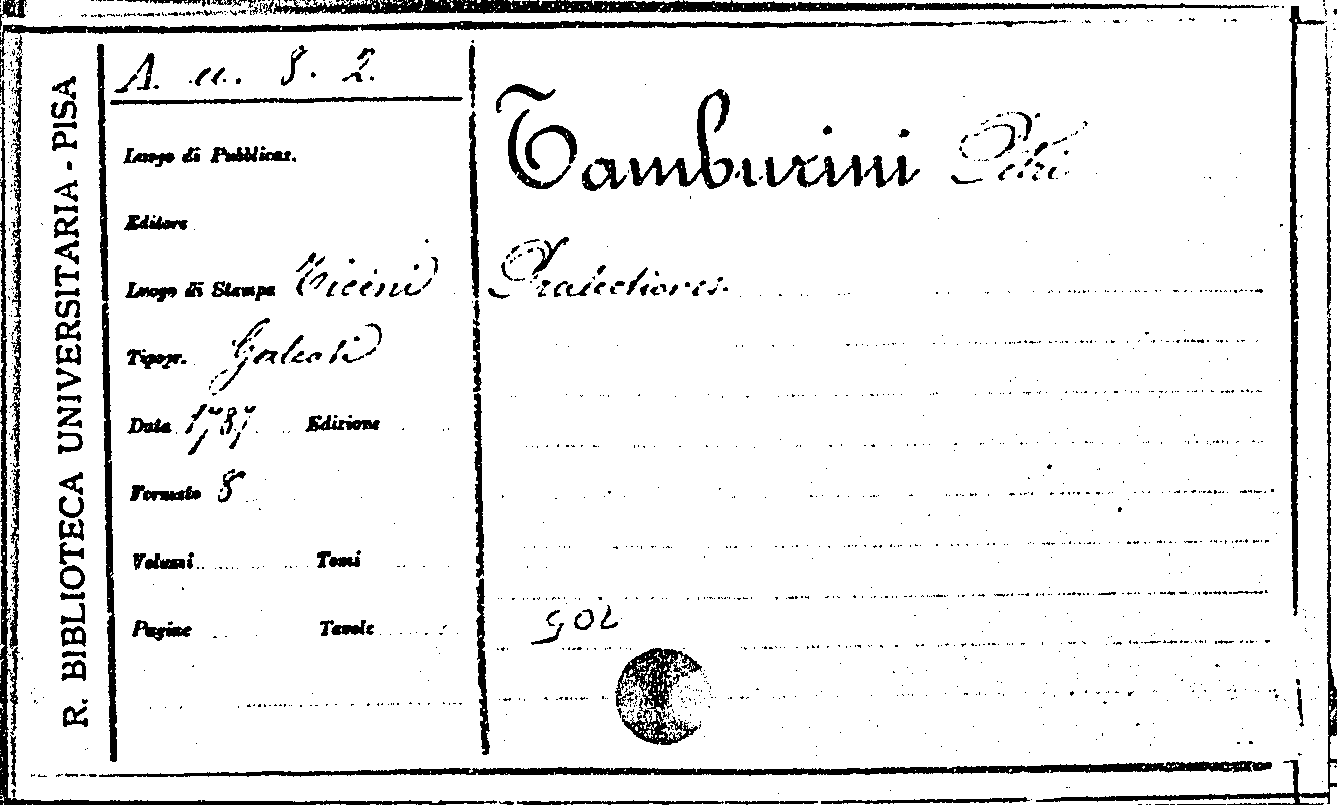 R. BIBLIOTECA UNIVERSITARIA - PISA
A. u. 8. 2.
Luogo di Pubblicaz.
Editore
Luogo di Stampa Ticini
Tipogr. Galeati
Data 1787 Edizione
Formato 8
Volumi Tomi
Pagine Tavole
Tamburini Petri
Praelectiones.
902